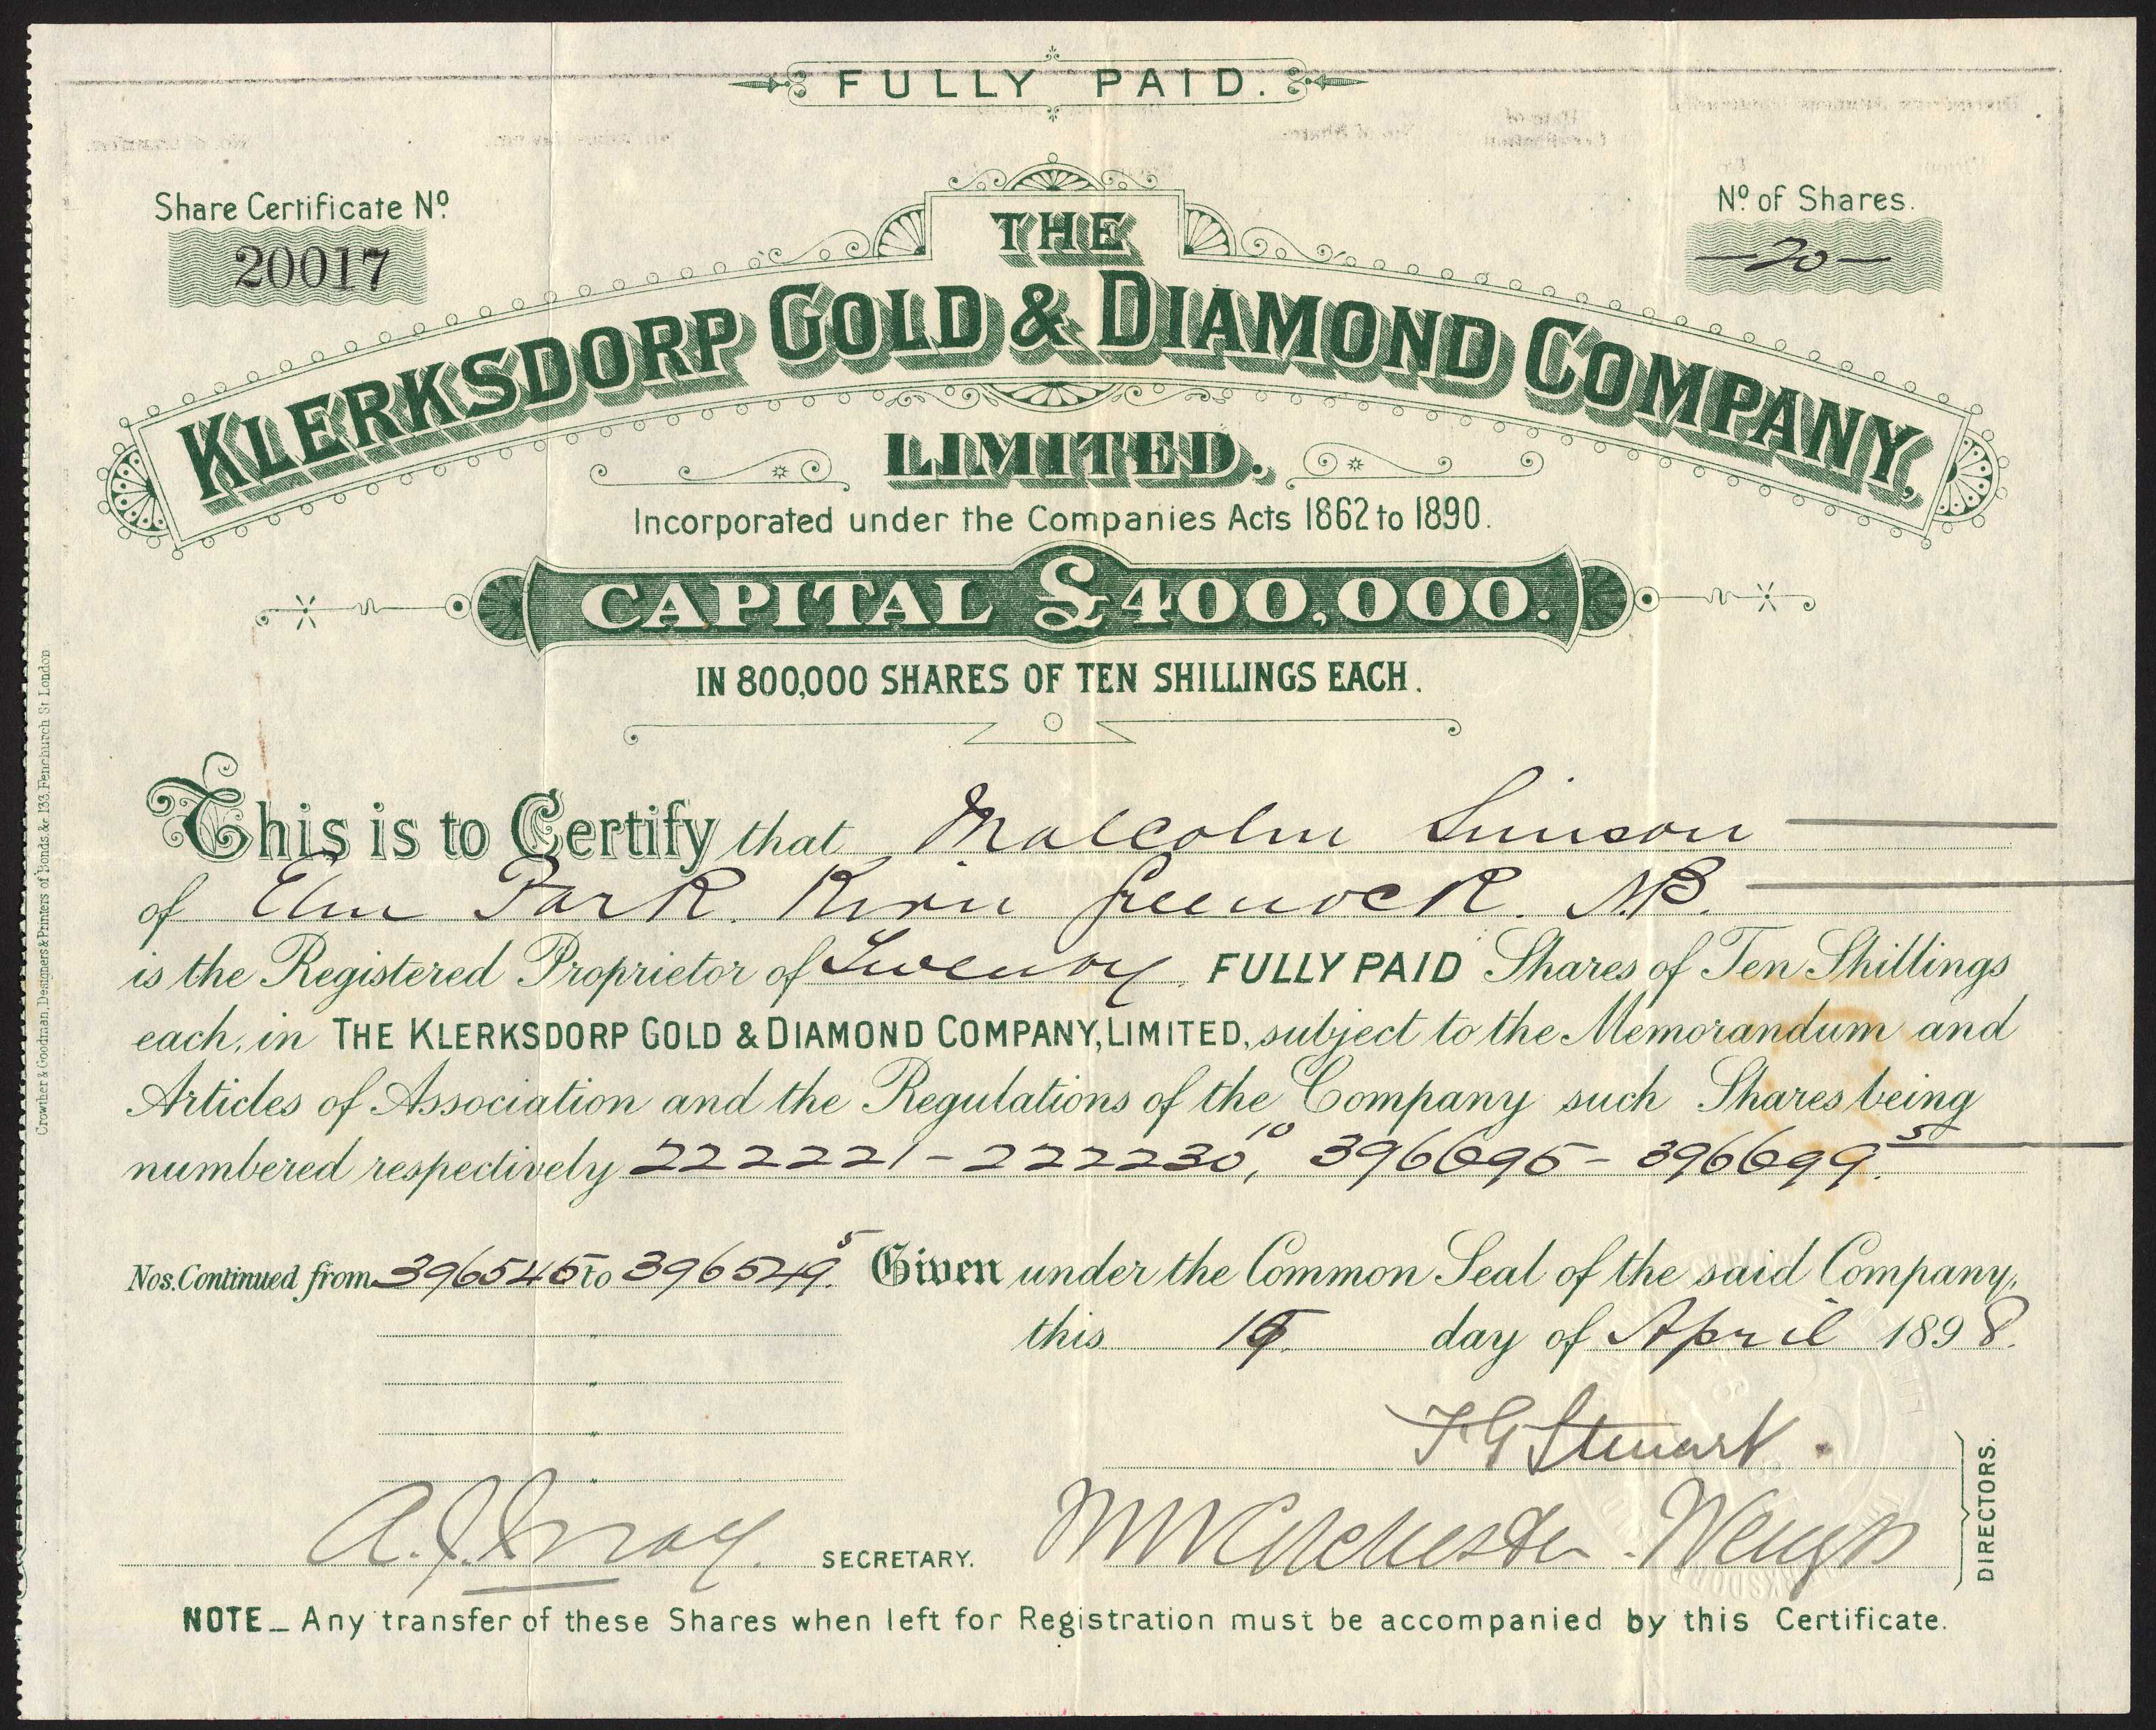 FULLY PAID.
Share Certificate No.
20017
No. of Shares.
—20—
THE
KLERKSDORP GOLD & DIAMOND COMPANY,
LIMITED.
Incorporated under the Companies Acts 1862 to 1890.
CAPITAL £400,000.
IN 800,000 SHARES OF TEN SHILLINGS EACH.
This is to Certify that Malcolm Simson
of Elm Park. Kirn Greenock. N.B.
is the Registered Proprietor of Twenty FULLY PAID Shares of Ten Shillings
each, in THE KLERKSDORP GOLD & DIAMOND COMPANY, LIMITED, subject to the Memorandum and
Articles of Association and the Regulations of the Company such Shares being
numbered respectively 222221-222230, 10 396695-396699. 5
Nos. Continued from 396545 to 396549. 5
Given under the Common Seal of the said Company,
this day of April 1898.
F G Stewart.
DIRECTORS.
SECRETARY.
NOTE_ Any transfer of these Shares when left for Registration must be accompanied by this Certificate.
Crowther & Goodman, Designers & Printers of Bonds, &c. 133, Fenchurch St. London